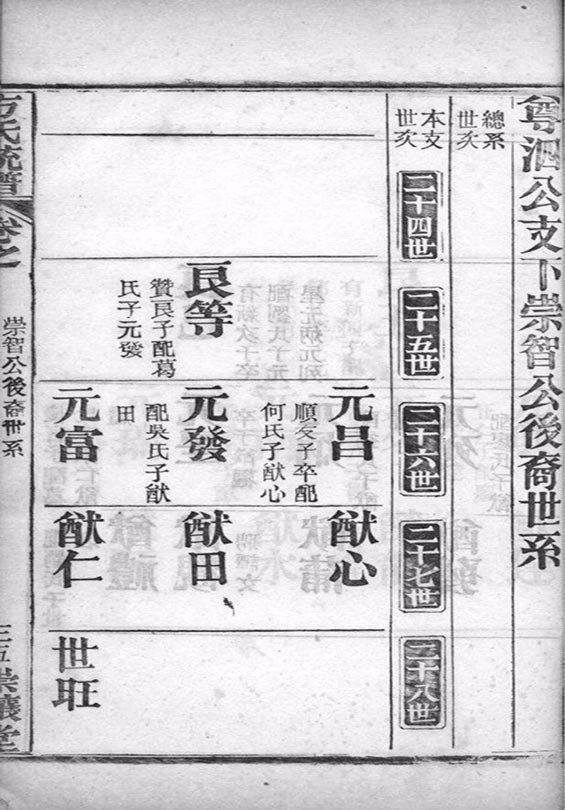 粵泗公支下崇智公後裔世系
總系
世次
本支
世次
二十四世
二十五世
二十六世
二十七世
二十八世
元昌
順友子卒配
何氏子猷心
猷心
良等
贊良子配葛
氏子元發
元發
配吳氏子猷
田
猷田
元富
猷仁
世旺
方氏統譜
卷之
崇智公後裔世系